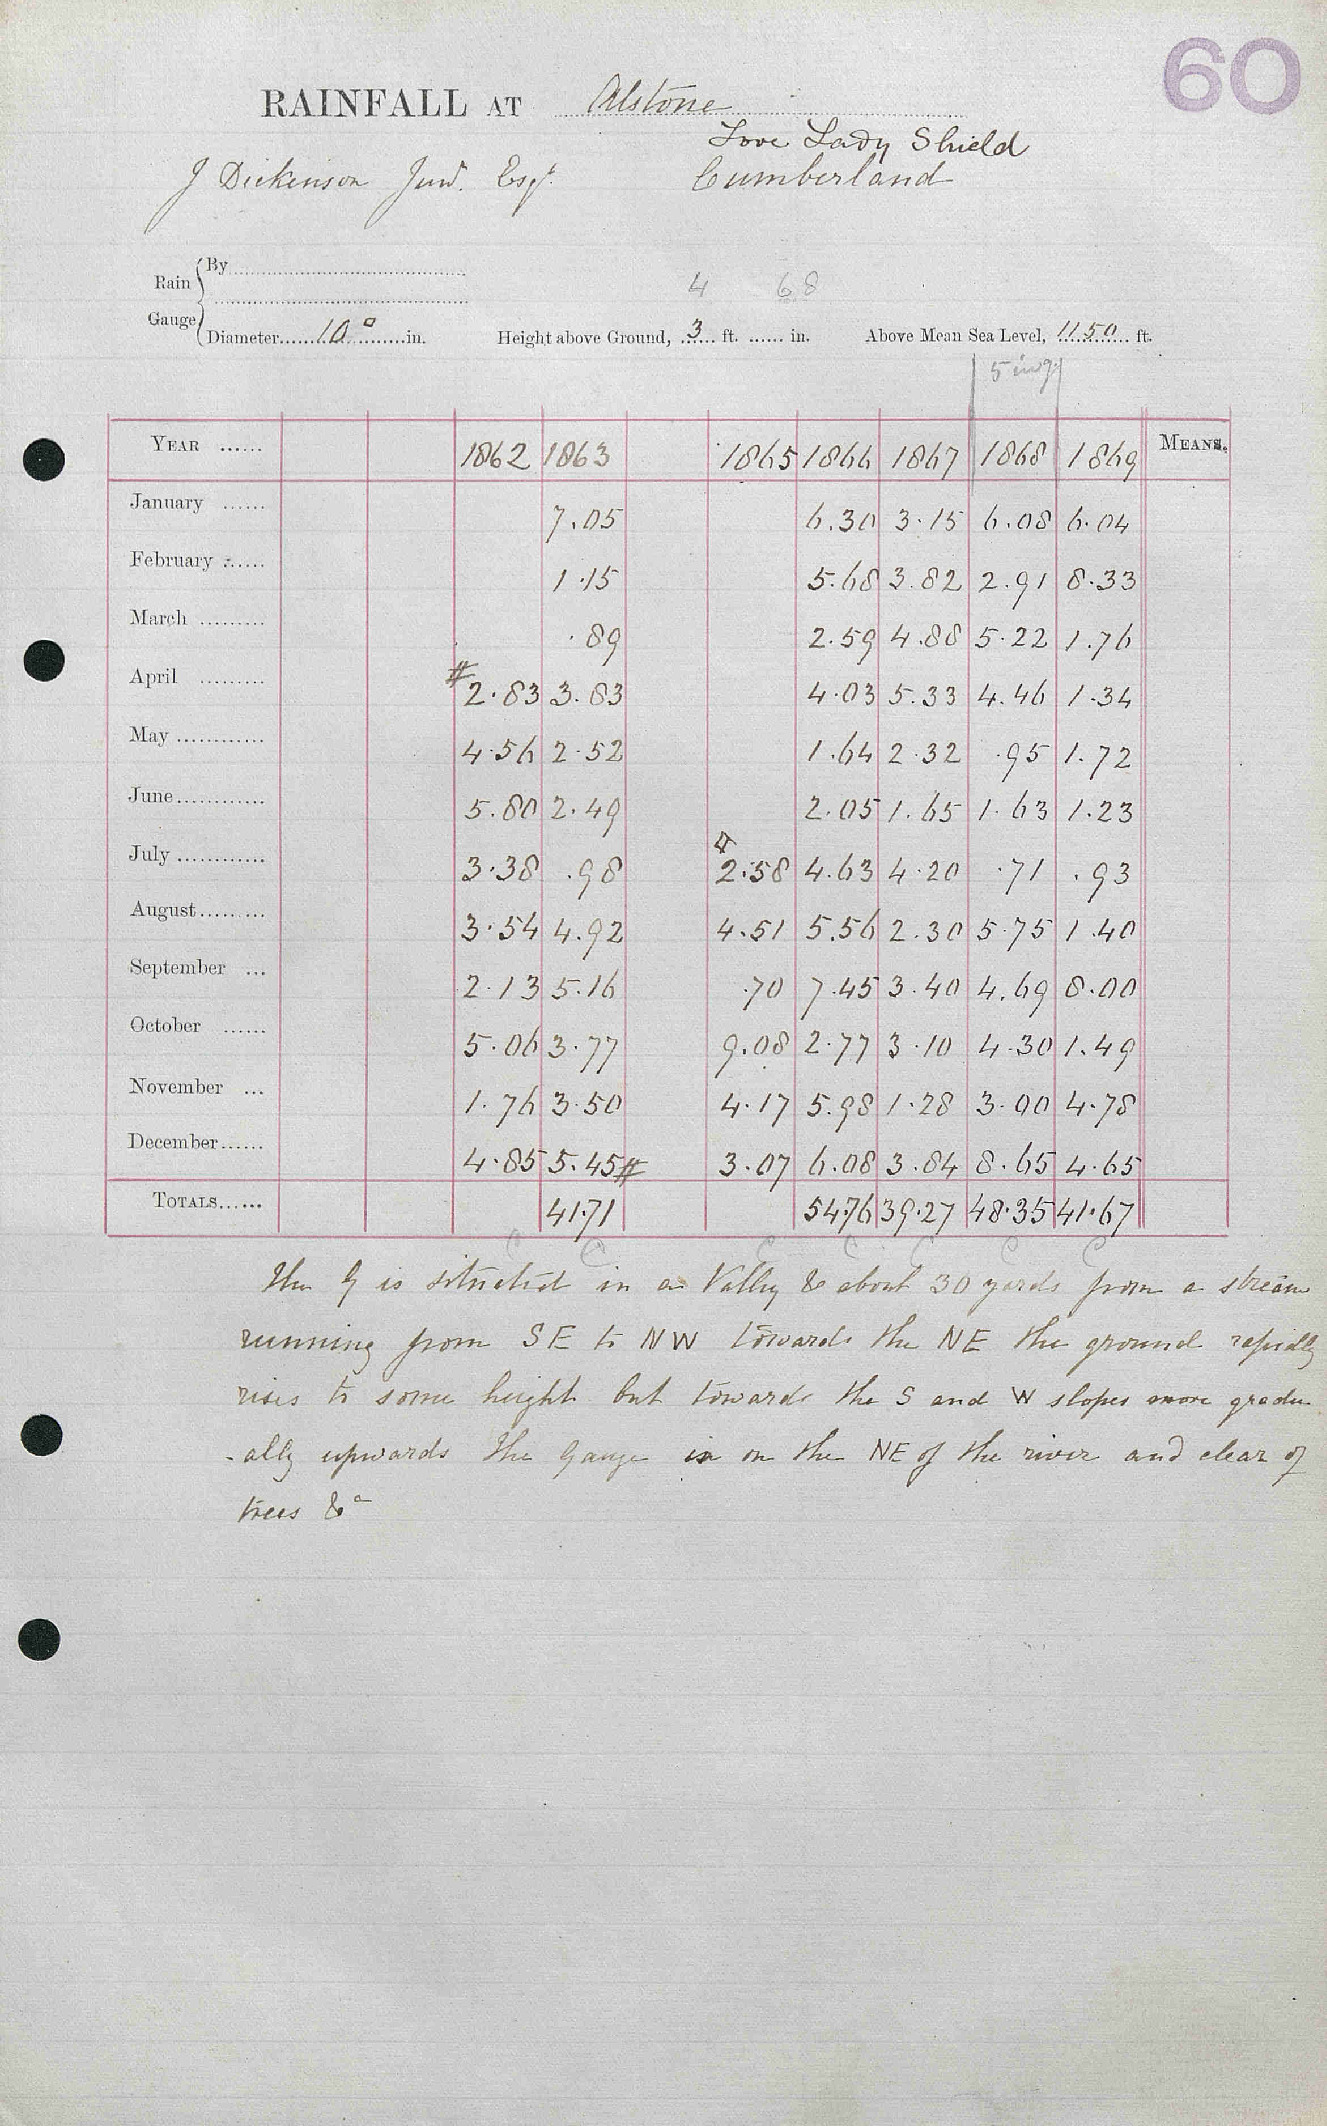 60
RAINFALL AT Alstone
Love Lady Shield
J Dickenson Junr. Esqr. Cumberland
Rain Gauge
By
4 68
Diameter 10 in. Height above Ground, 3 ft. in. Above Mean Sea Level, 1150 ft.
5 in g
YEAR 1862 1863 1865 1866 1867 1868 1869 MEANS.
January 7.05 6.30 3.15 6.08 6.04
February 1.15 5.68 3.82 2.91 8.33
March .89 2.59 4.88 5.22 1.76
April # 2.83 3.83 4.03 5.33 4.46 1.34
May 4.56 2.52 1.64 2.32 .95 1.72
June 5.80 2.49 2.05 1.65 1.63 1.23
July 3.38 .98 2.58 4.63 4.20 .71 .93
August 3.54 4.92 4.51 5.56 2.30 5.75 1.40
September 2.13 5.16 .70 7.45 3.40 4.69 8.00
October 5.06 3.77 9.08 2.77 3.10 4.30 1.49
November 1.76 3.50 4.17 5.98 1.28 3.00 4.78
December 4.85 5.45 # 3.07 6.08 3.84 8.65 4.65
TOTALS 41.71 54.76 39.27 48.35 41.67
C C C C C C C
The G is situated in a Valley & about 30 yards from a stream
running from SE to NW towards the NE the ground rapidly
rises to some height but towards the S and W slopes more gradu
-ally upwards the Gauge is on the NE of the river and clear of
trees &c